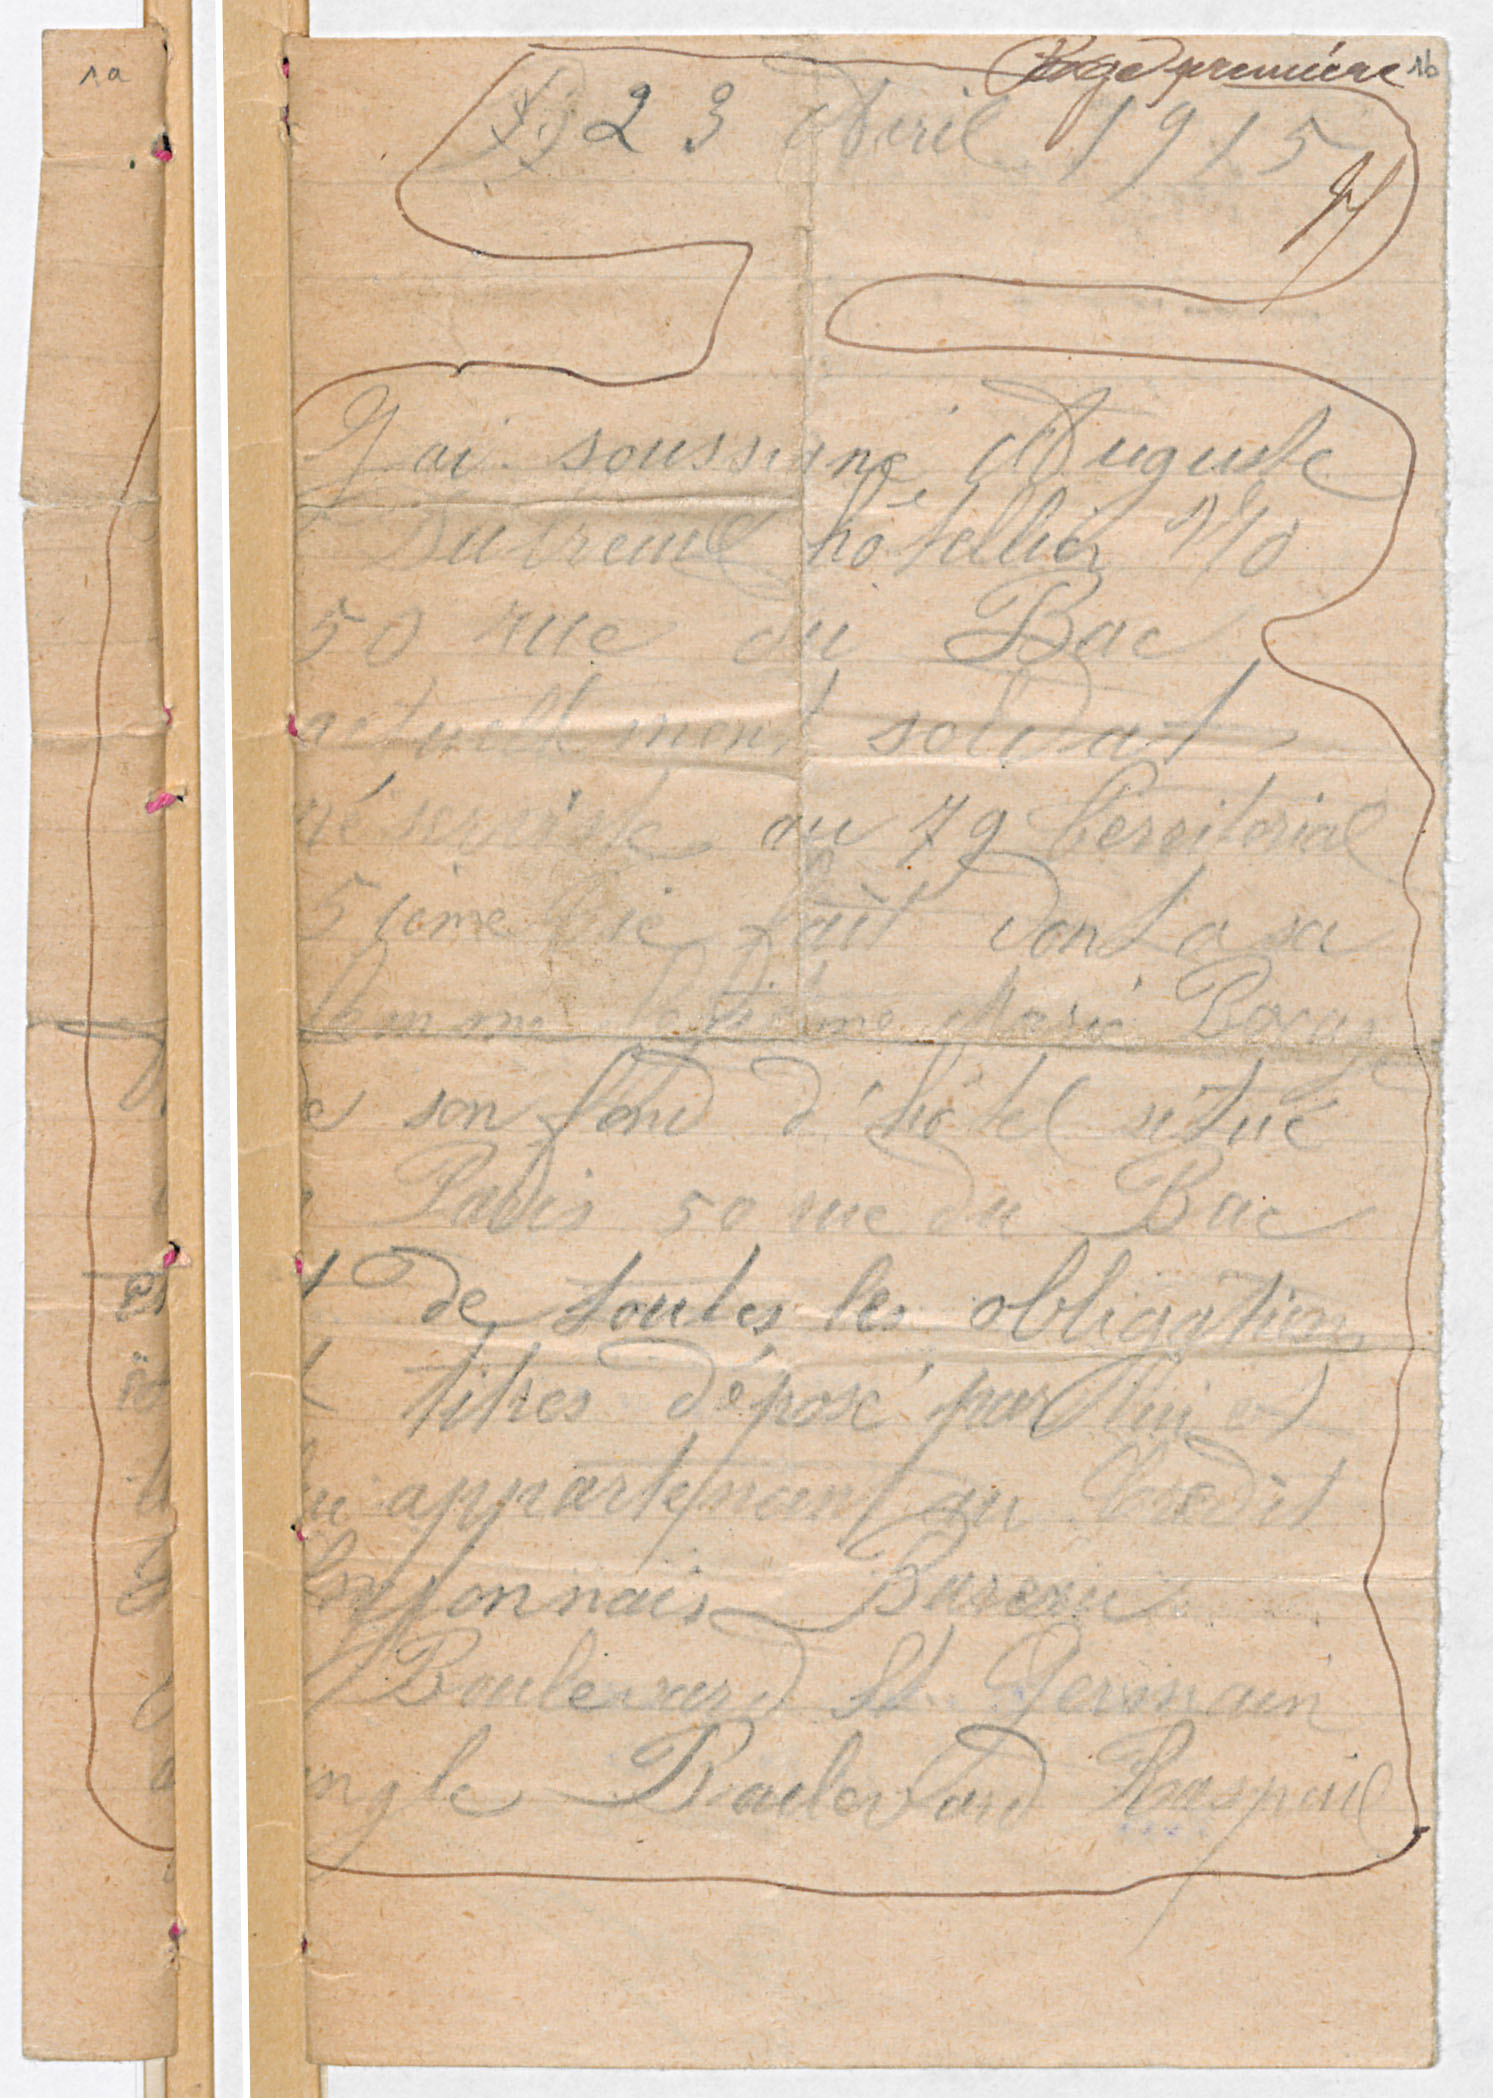 1a
Page première 1b
23 Avril 1915
J ai soussigné Auguste
Dutreuil hôtellier
50 rue du Bac
actuellement soldat
réserviste au 79 territorial
5 ième Cie fait dont a sa
femme Marie
de son fond d'hôtel situé
a Paris 50 rue du Bac
et de toutes les obligations
et titres déposé par lui et
lui appartenant au Crédit
Lyonnais Bureau
Boulevard St Germain
angle Boulevard Raspail